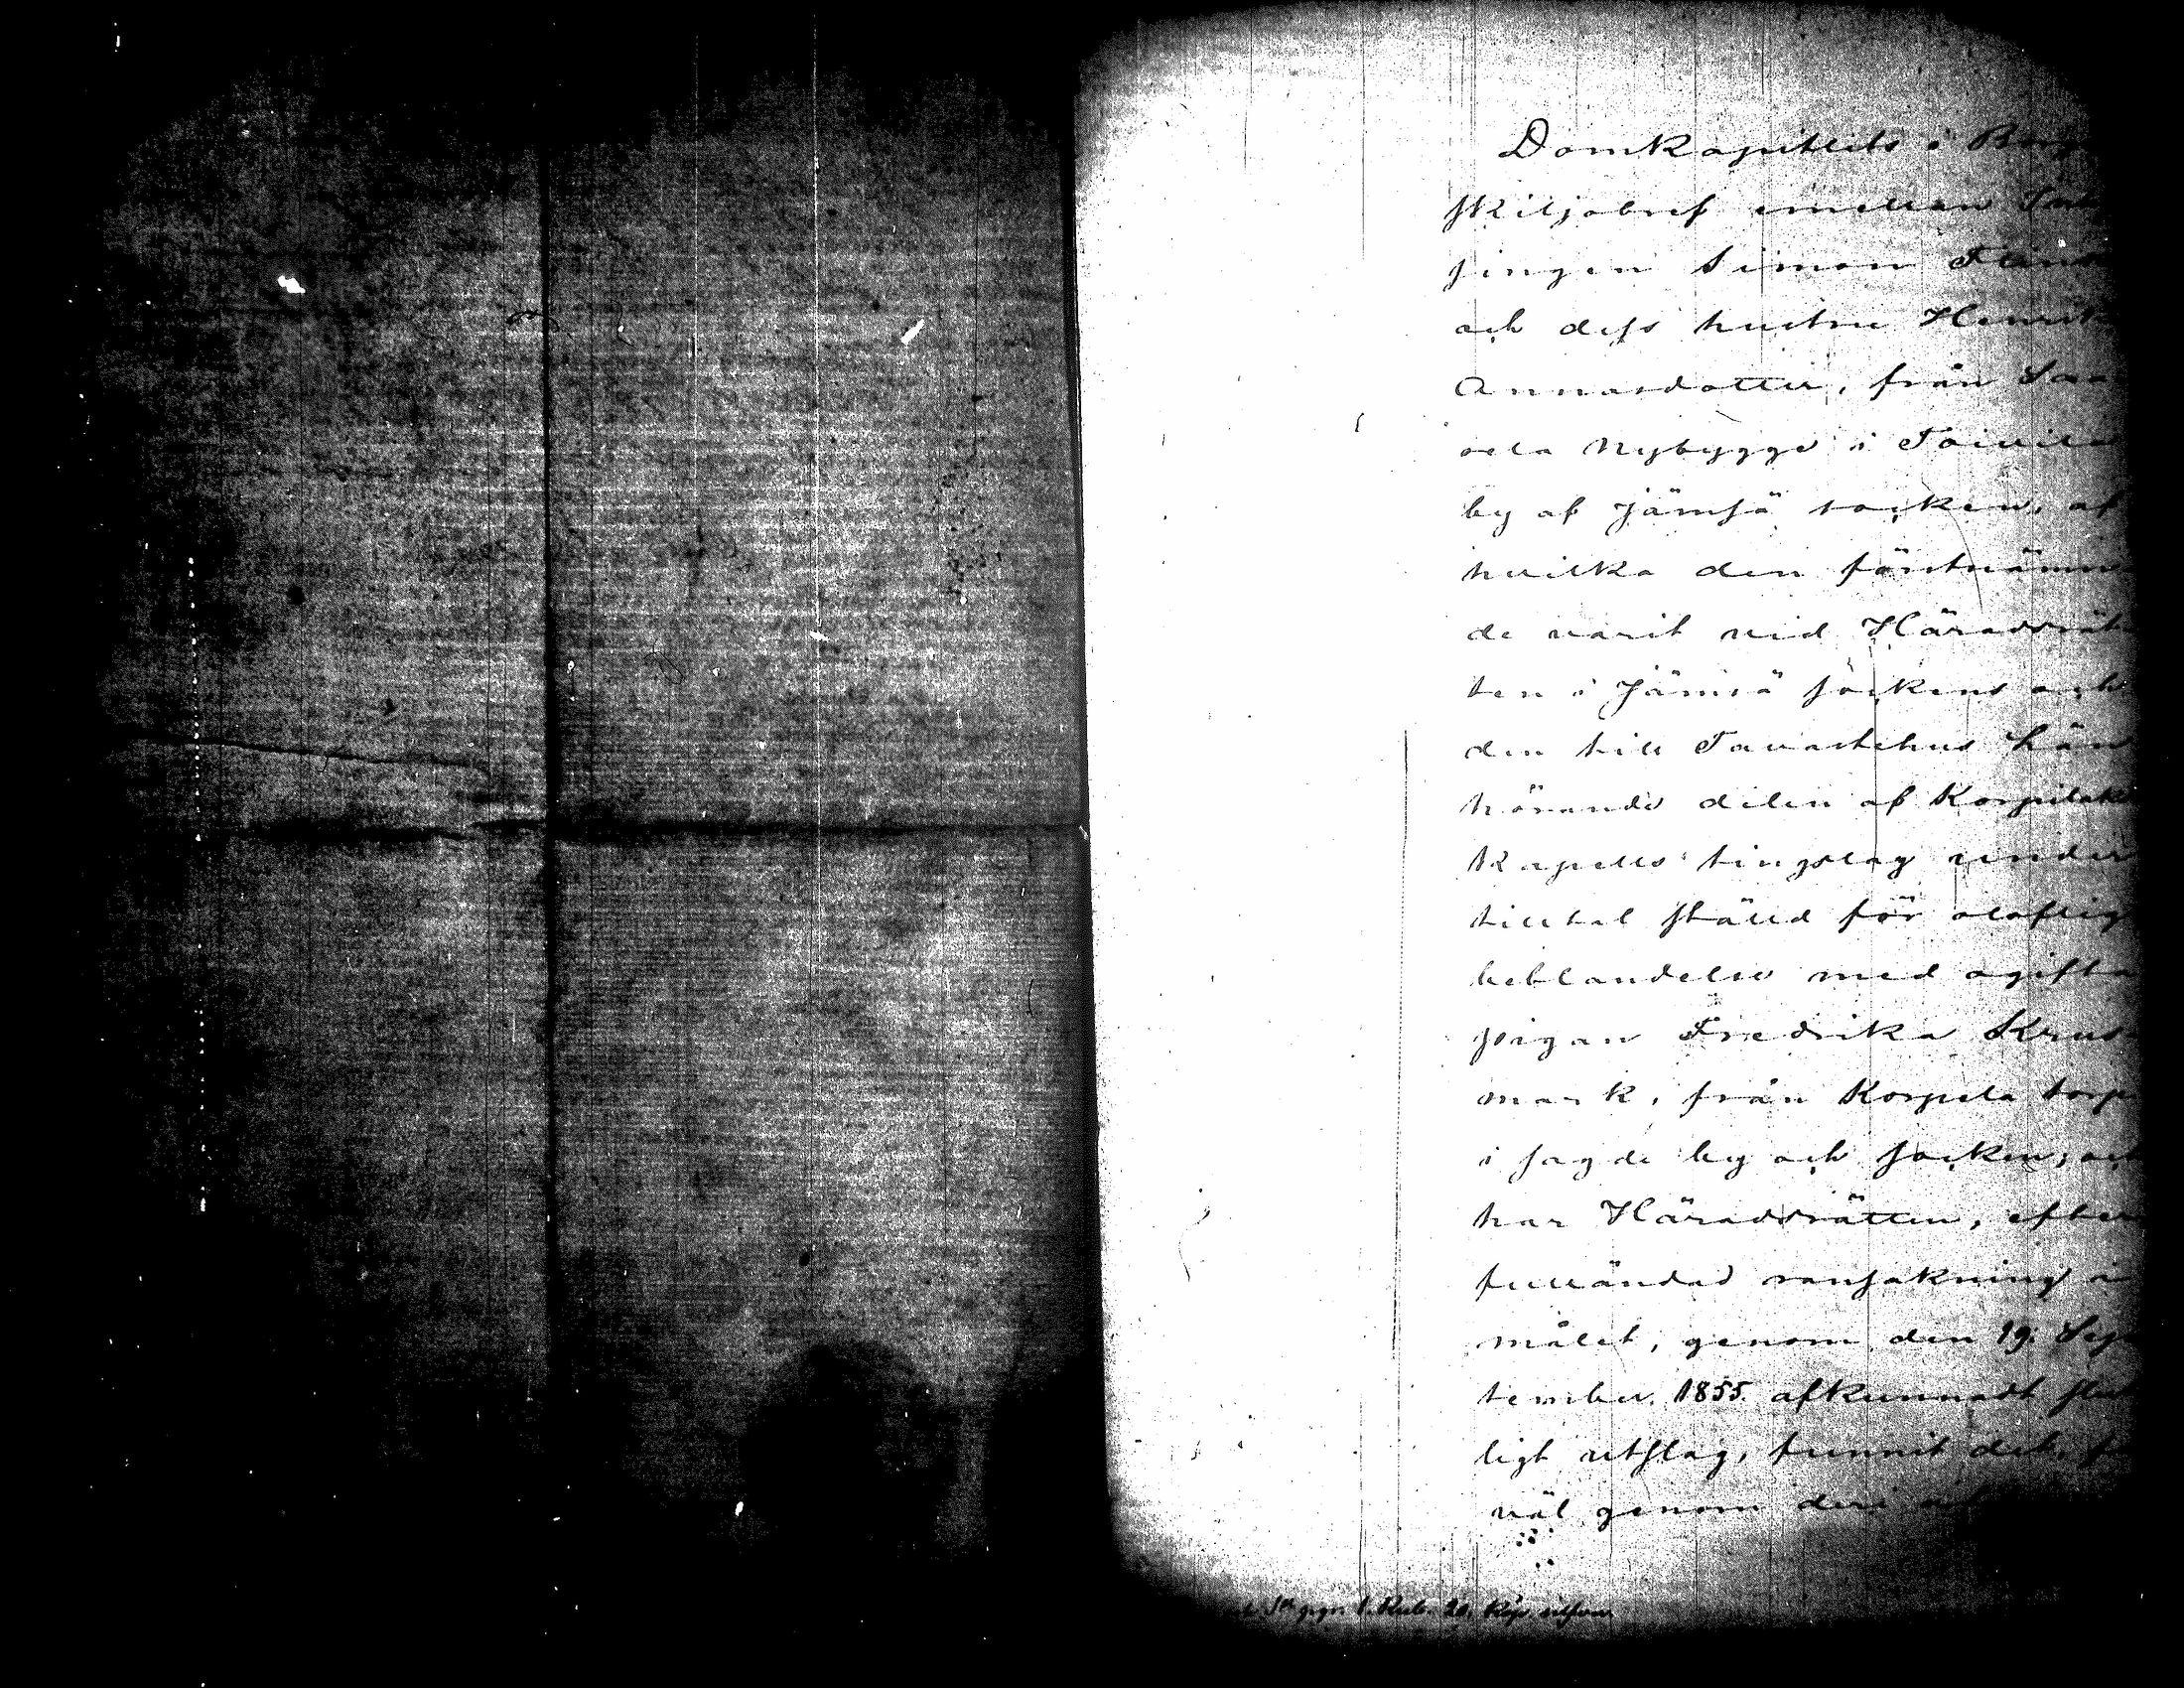 Domkapitlets i Borgå
skiljobref emellan
jingen Simon
och dess hustru
Annasdotter, från
oela Nybygge i Toivila
by af Jämsä socken, af
hvilka den förstnämn
de varit vid Häradsrät
ten i Jämsä sockens och
den till Tavastehus Läns
hörande delen af Korpilaks
kapells tingslag under
tilltal ställd för olaflig
beblandelse med ogifta
pigan Fredrika Krus
mark, från Korpela torp
i sagde by och socken; och
har Häradsrätten, efter
fulländad ransakning i
målet, genom den 19. Sep
tember. 1855. afkunnadt slut
ligt utslag, funnit det
väl genom deri
1. Rub. 20. Kop. silfver